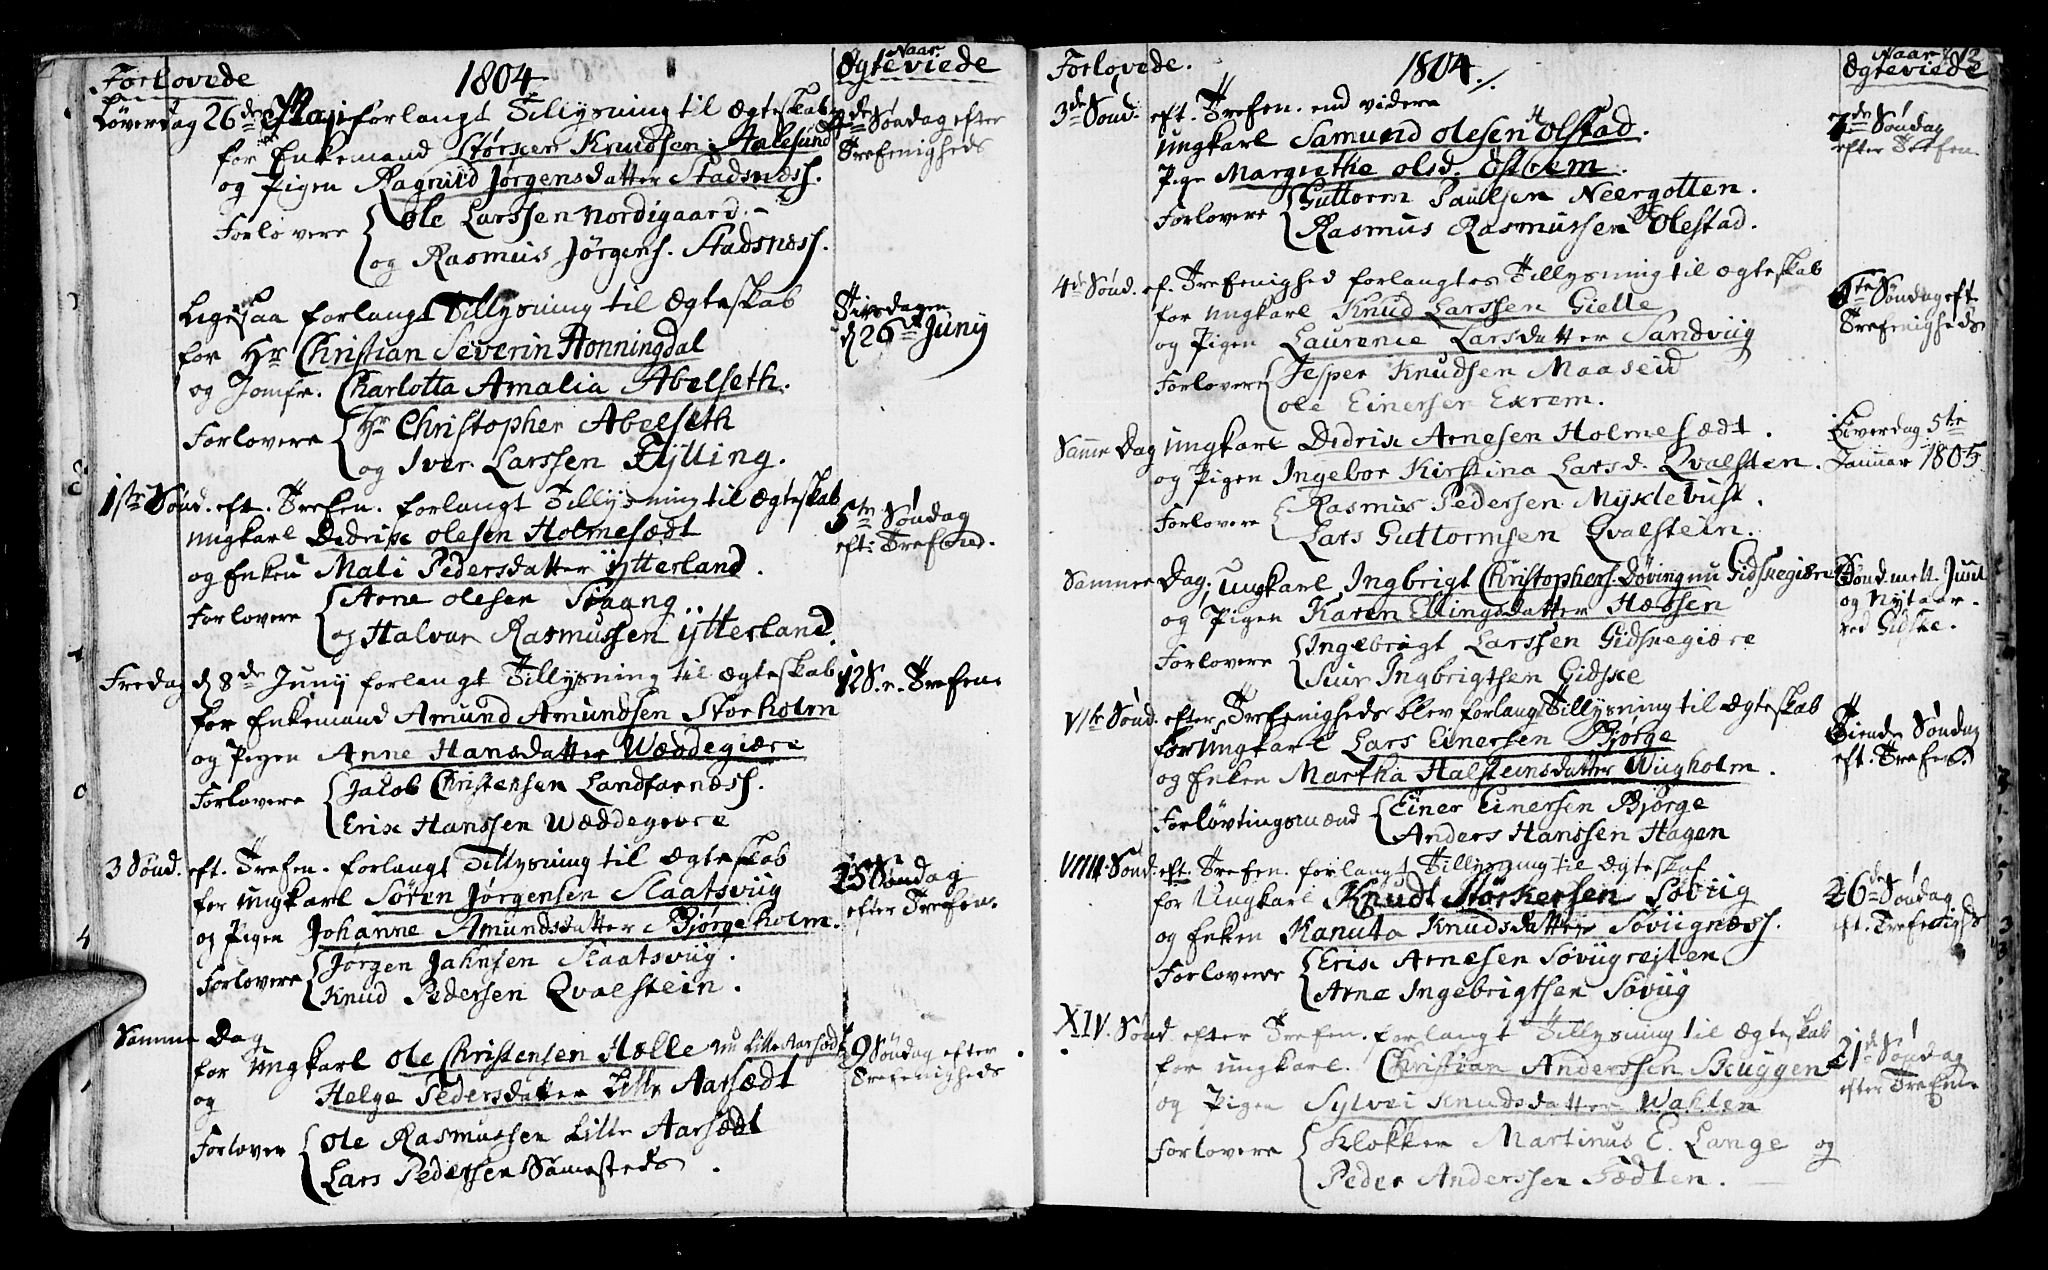 Forlovede
1804.
Naar
Ægteviede
Løverdag 26de Maji forlangt Tillysning til Ægteskab
for Enkemand Størker Knudsen Aalesund
og Pigen Ragnild Jørgensdatter Stadsness.
Forlovere Ole Larssen Nordigaard.
og Rasmus Jørgens. Stadsness.
4de Søndag efter
Trefenigheds
Ligesaa forlangt Tillysning til Ægteskab
for Hr Christian Severin Honningdal
og Jomfr. Charlotta Amalia Abelseth.
Forlovere Hr Christopher Abelseth
og Iver Larssen Fylling.
Tirsdagen
d 26de Junij
1ste Sønd. eft. Trefen. forlangt Tillysning til Ægteskab
Ungkarl Didrik Olesen Holmesædt
og Enken Mali Pedersdatter Ytterland.
Forlovere Arne Olesen
og Halvar Rasmussen Ytterland.
5te Søndag
eft. Trefend.
Fredag d 8de Junij forlangt Tillysning til Ægteskab
for Enkemand Amund Amundsen Storholm
og Pigen Anne Hansdatter Wæddegiære
Forlovere Jacob Christensen Landfarness.
Erik Hanssen Wæddegære
12 S. e. Trefen.
3 Sønd. eft. Trefen. forlangt Tillysning til Ægteskab
for Ungkarl Søren Jørgensen Slaatsviig
og Pigen Johanne Amundsdatter Bjørgeholm.
Forlovere Jørgen Jahnsen Slaatsviig.
Knud Pedersen Qvalstein.
15 Søndag
efter Trefen.
Samme Dag
for Ungkarl Ole Christensen Hælle nu Lille Aarsædt
og Helge Pedersdatter Lille Aarsædt
Forlover Ole Rasmussen Lille Aarsædt
Lars Pedersen Sammesteds.
9 Søndag efter
Trefenigheds
Forlovede.
1804.
Naar
Ægteviede
13
3de Sønd. eft. Trefen. end videre
Ungkarl Samund Olesen Olstad.
Pige Margrethe Olsd. Exrem.
Forlovere Guttorm Paulsen Neergotten.
Rasmus Rasmussen Olestad.
7de Søndag
efter Trefen.
4de Sønd. ef. Trefenighed forlangtes Tillysning til Ægteskab
for Ungkarl Knud Larssen Gielle
og Pigen Laurence Larsdatter Sandviig
Forlovere Jesper Knudsen Maaseid
Ole Einersen Exrem.
6te Søndag eft.
Trefenigheds
Samme Dag Ungkarl Didrik Arnesen Holmesædt.
og Pigen Ingebor Kirstina Larsd. Qvalsten.
Forlovere Rasmus Pedersen Myklebust.
Lars Guttormsen Qvalstein.
Løverdag 5te
Januar 1805
Samme Dag, Ungkarl Ingbrigt Christophers. Døving nu Gidskegiære
og Pigen Karen Ellingsdatter Hæssen
Forlovere Ingebrigt Larssen Gidskegiære
Siur Ingbrigtsen Gidske
Sønd. mell. Juul
og Nytaar.
ved Gidske.
VIte Sønd. efter Trefenigheds blev forlangt Tillysning til Ægteskab
for Ungkarl Lars Einersen Bjørge
og Enken Martha Halsteinsdatter Wiigholm.
Forløvtingsmænd Einer Einersen Bjørge
Anders Hanssen Hagen
Tiende Søndag
eft. Trefen.
VIIII. Sønd. eft. Trefen. forlangt Tillysning til Ægteskab
for Ungkarl Knudt Størkersen Søviig
og Enken Kanuta Knudsdatter Søviigness.
Forlovere Erik Arnesen Søviigrejten
Arne Ingebrigtsen Søviig
26de Søndag
eft. Trefenighs
XIV. Sønd. efter Trefen. forlangt Tillysning til Ægteskab
for Ungkarl. Christian Anderssen Skuggen
og Pigen Sylvei Knudsdatter Wahlen
Forlovere Klokker Martinus E. Lange og
Peder Anderssen Fædten.
21de Søndag
efter Trefen.